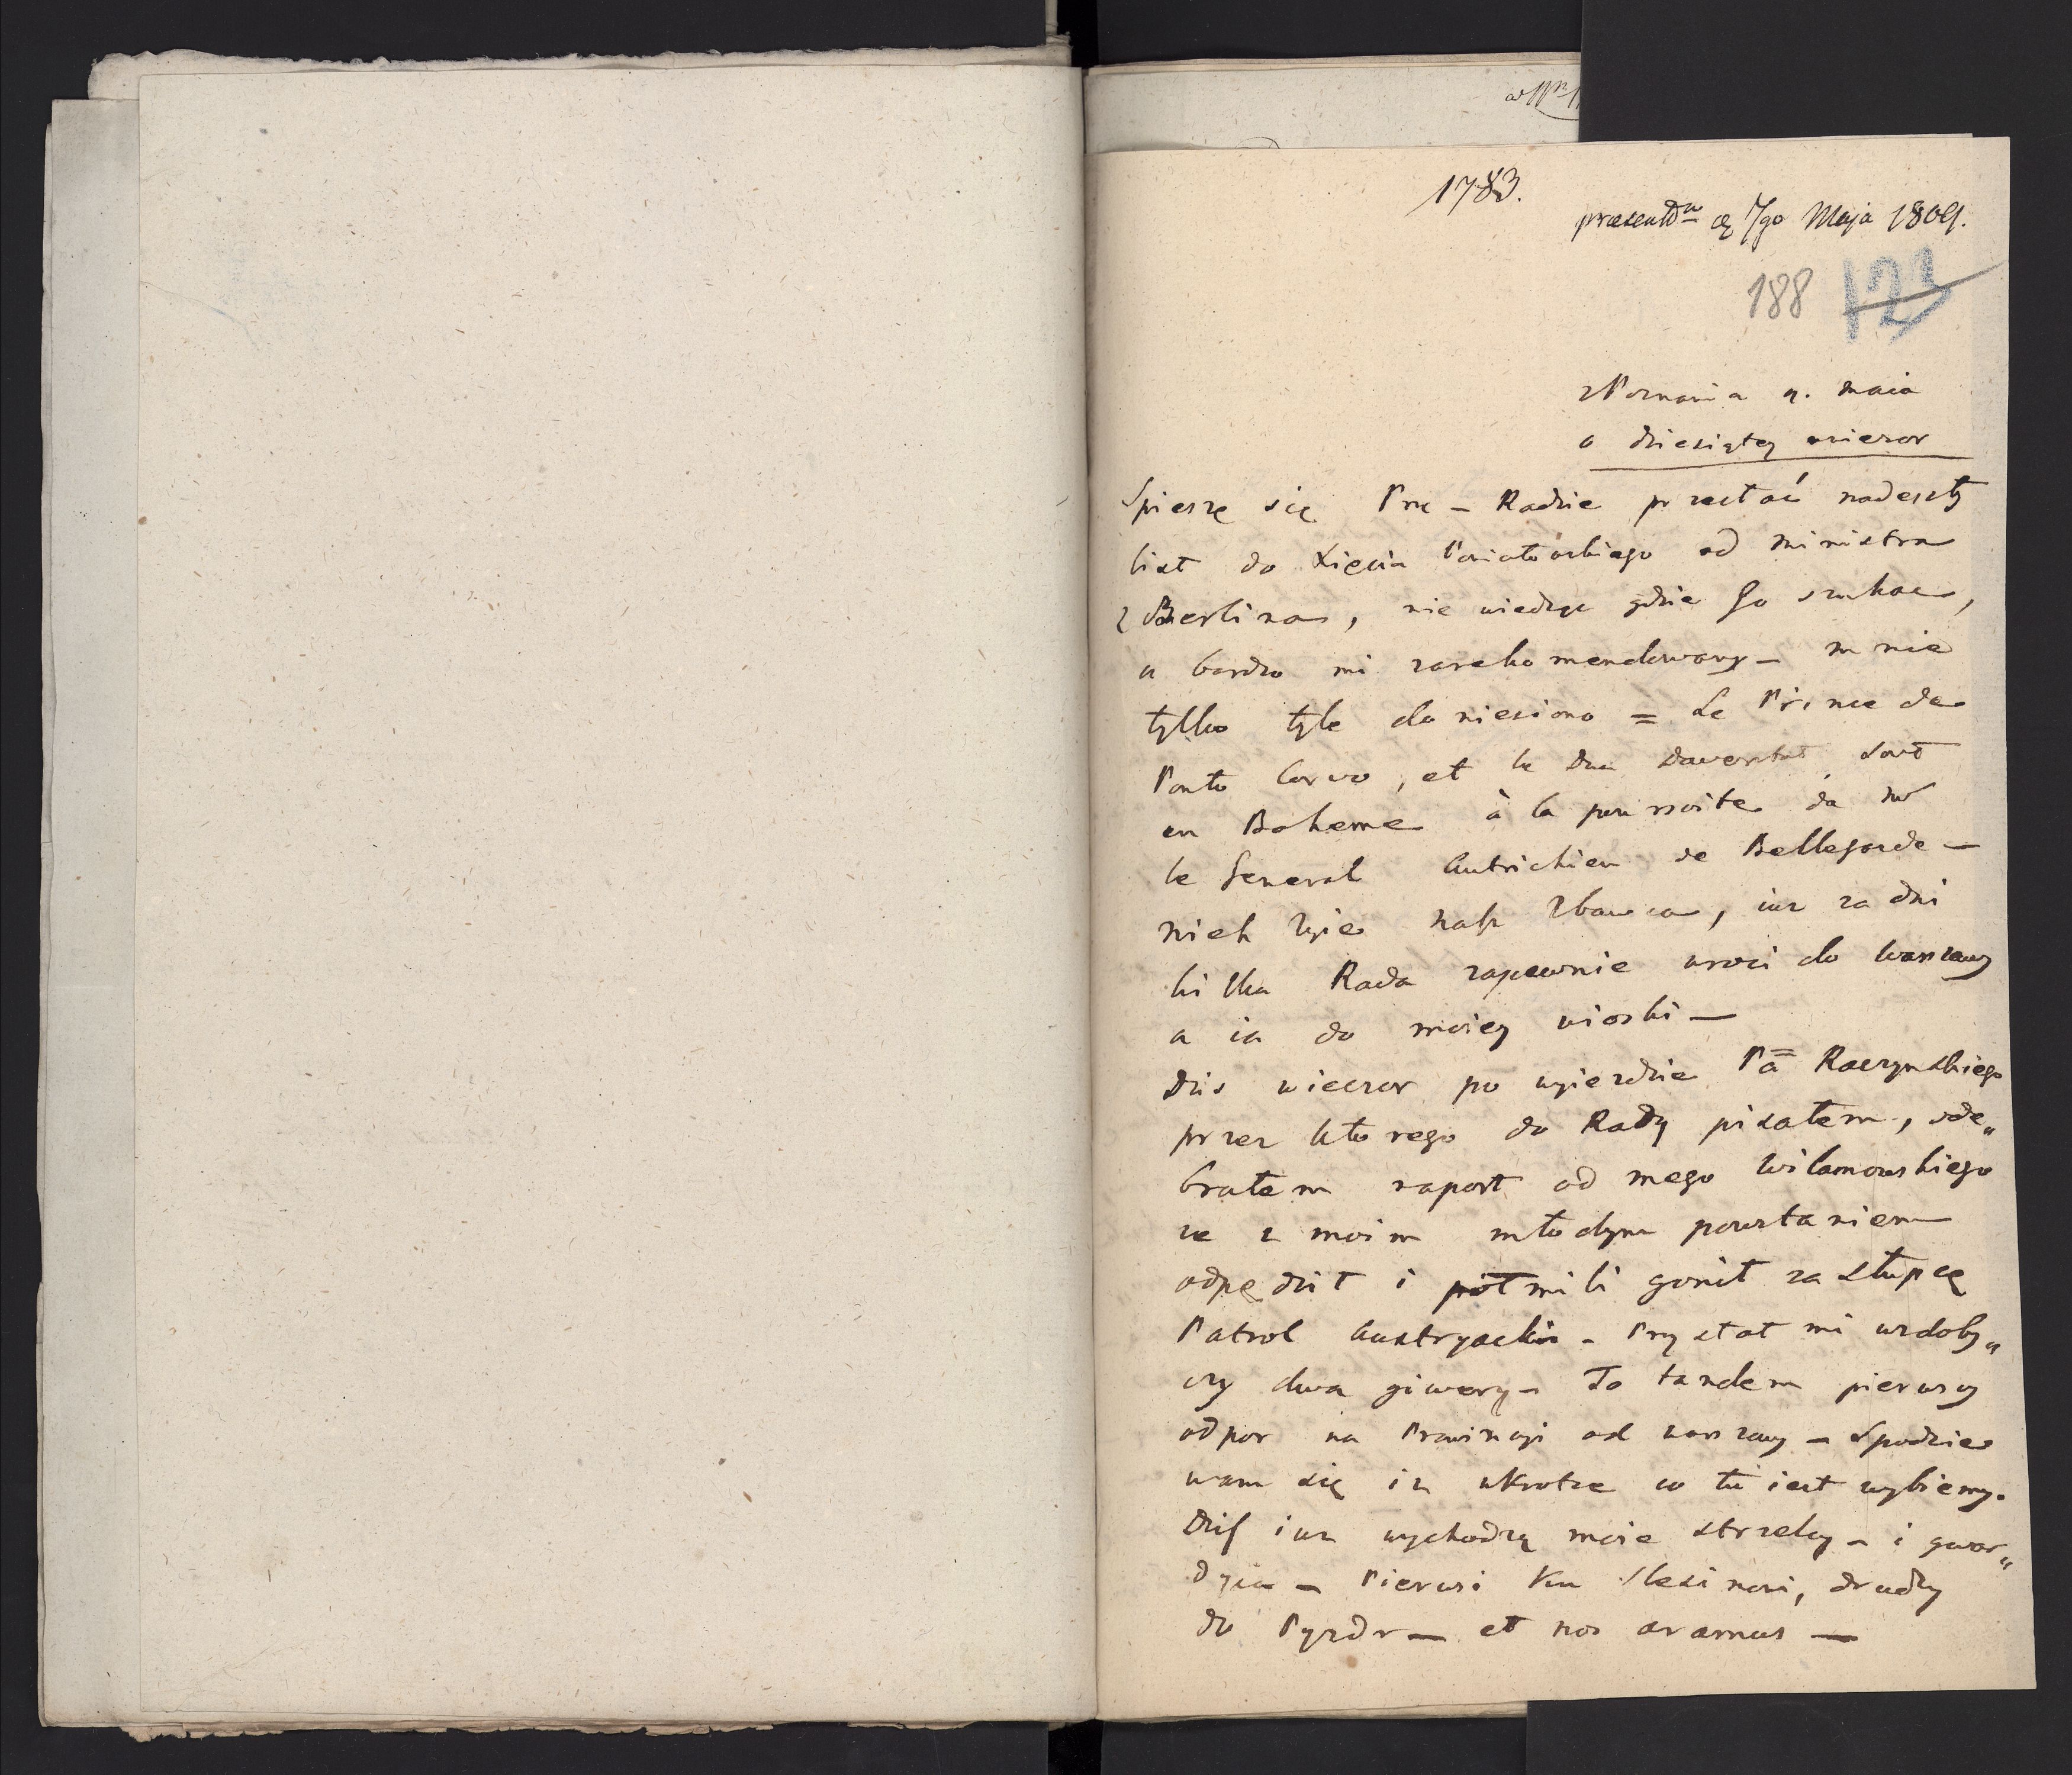 1783.
praesentm. 7go Maja 1809.
188 123
z Poznania 9. maia
o dziesiątey wieczor
Spieszę się Prze – Radzie przesłać nadeszły
list do Xięcia Poniatowskiego od Ministra
z Berlina, nie wiedząc gdzie Go szukac,
a bardzo mi zarekomendowany – mnie
tylko tyle doniesiono = Le Prince de
Ponto Corvo, et le Duc Daverstat, sont
en Boheme à la poursoite de Mr
le General Autrichien de Bellegarde –
niech żyie nasz Zbawca, iuz za dni
kilka Rada zapewnie wroci do Warszawy
a ia do moiey wioski –
Dzis wieczor po wyiezdzie Pa Raczynskiego
przez ktorego do Rady pisałem, ode„
brałem raport od mego Wilamowskiego
ze z moim młodym powstaniem
odpędził i poł mili gonił za Słupcę
Patrol Austryacki – Przysłał mi w zdoby„
czy dwa giwery – To tandem pierwszy
odpor na Prowincyi od Warszawy – Spodzie
wam się iz wkrotce co tu iest wybiemy.
Dziś iuz wychodzą moie strzelcy – i gwar„
dyia – Pierwsi ku Slesinowi, drudzy
do Pyzdr – et nos aramus –